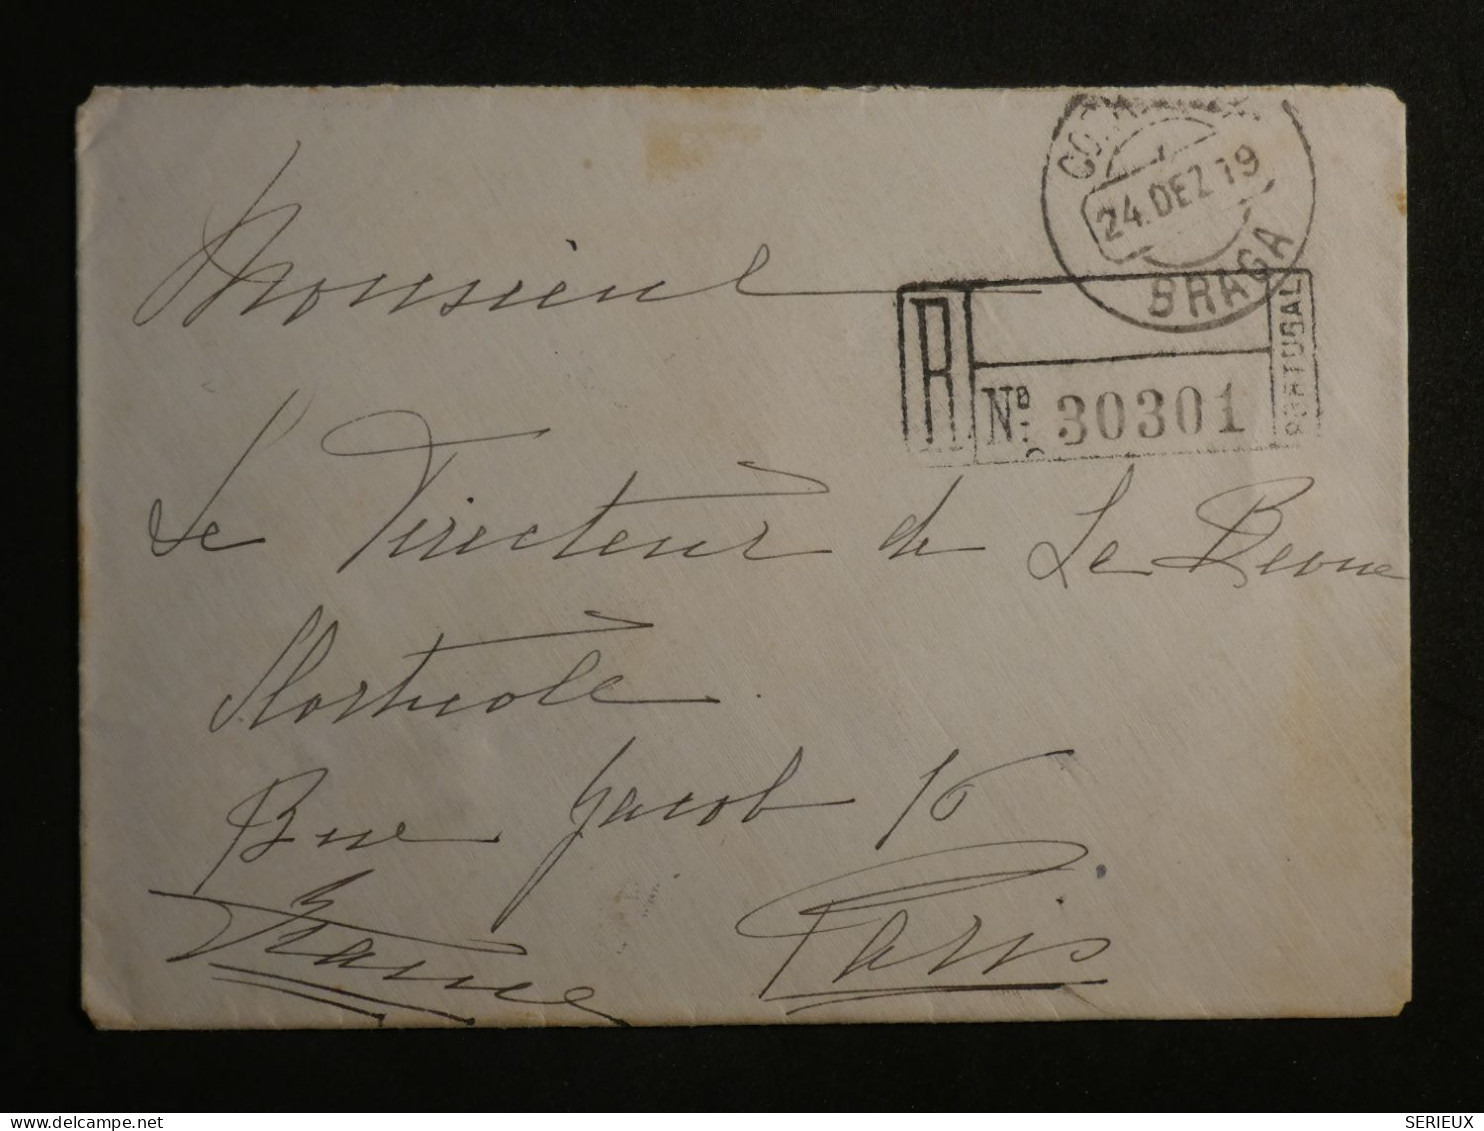 24.DEZ.19
BRAGA
R
PORTUGAL
Nº 30301
Monsieur
Le Directeur de La Revue
Horticole
Rue Jacob 16
Paris
France
www.delcampe.net
SERIEUX